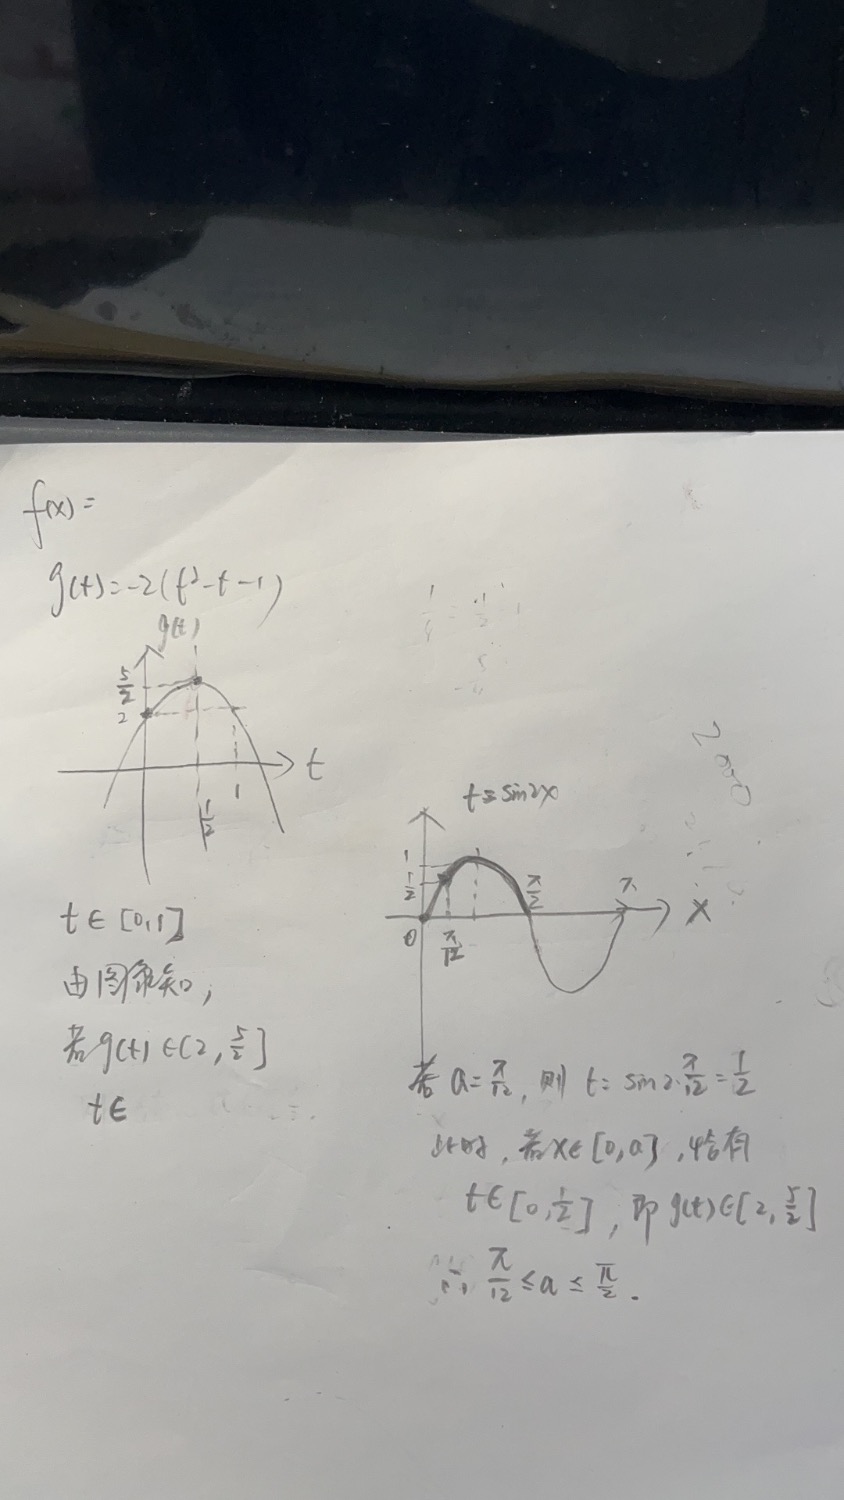 f(x)=
g(t)=-2(t²-t-1)
g(t)
5/2
2
t
1
1/2
t∈[0,1]
由图象知,
若g(t)∈[2,5/2]
t∈
t=sin2x
1
1/2
π/2
π
x
0
π/12
若a=π/12,则t=sin2·π/12=1/2
此时,若x∈[0,a],恰有
t∈[0,1/2],即g(t)∈[2,5/2]
∴π/12≤a≤π/2.
2000